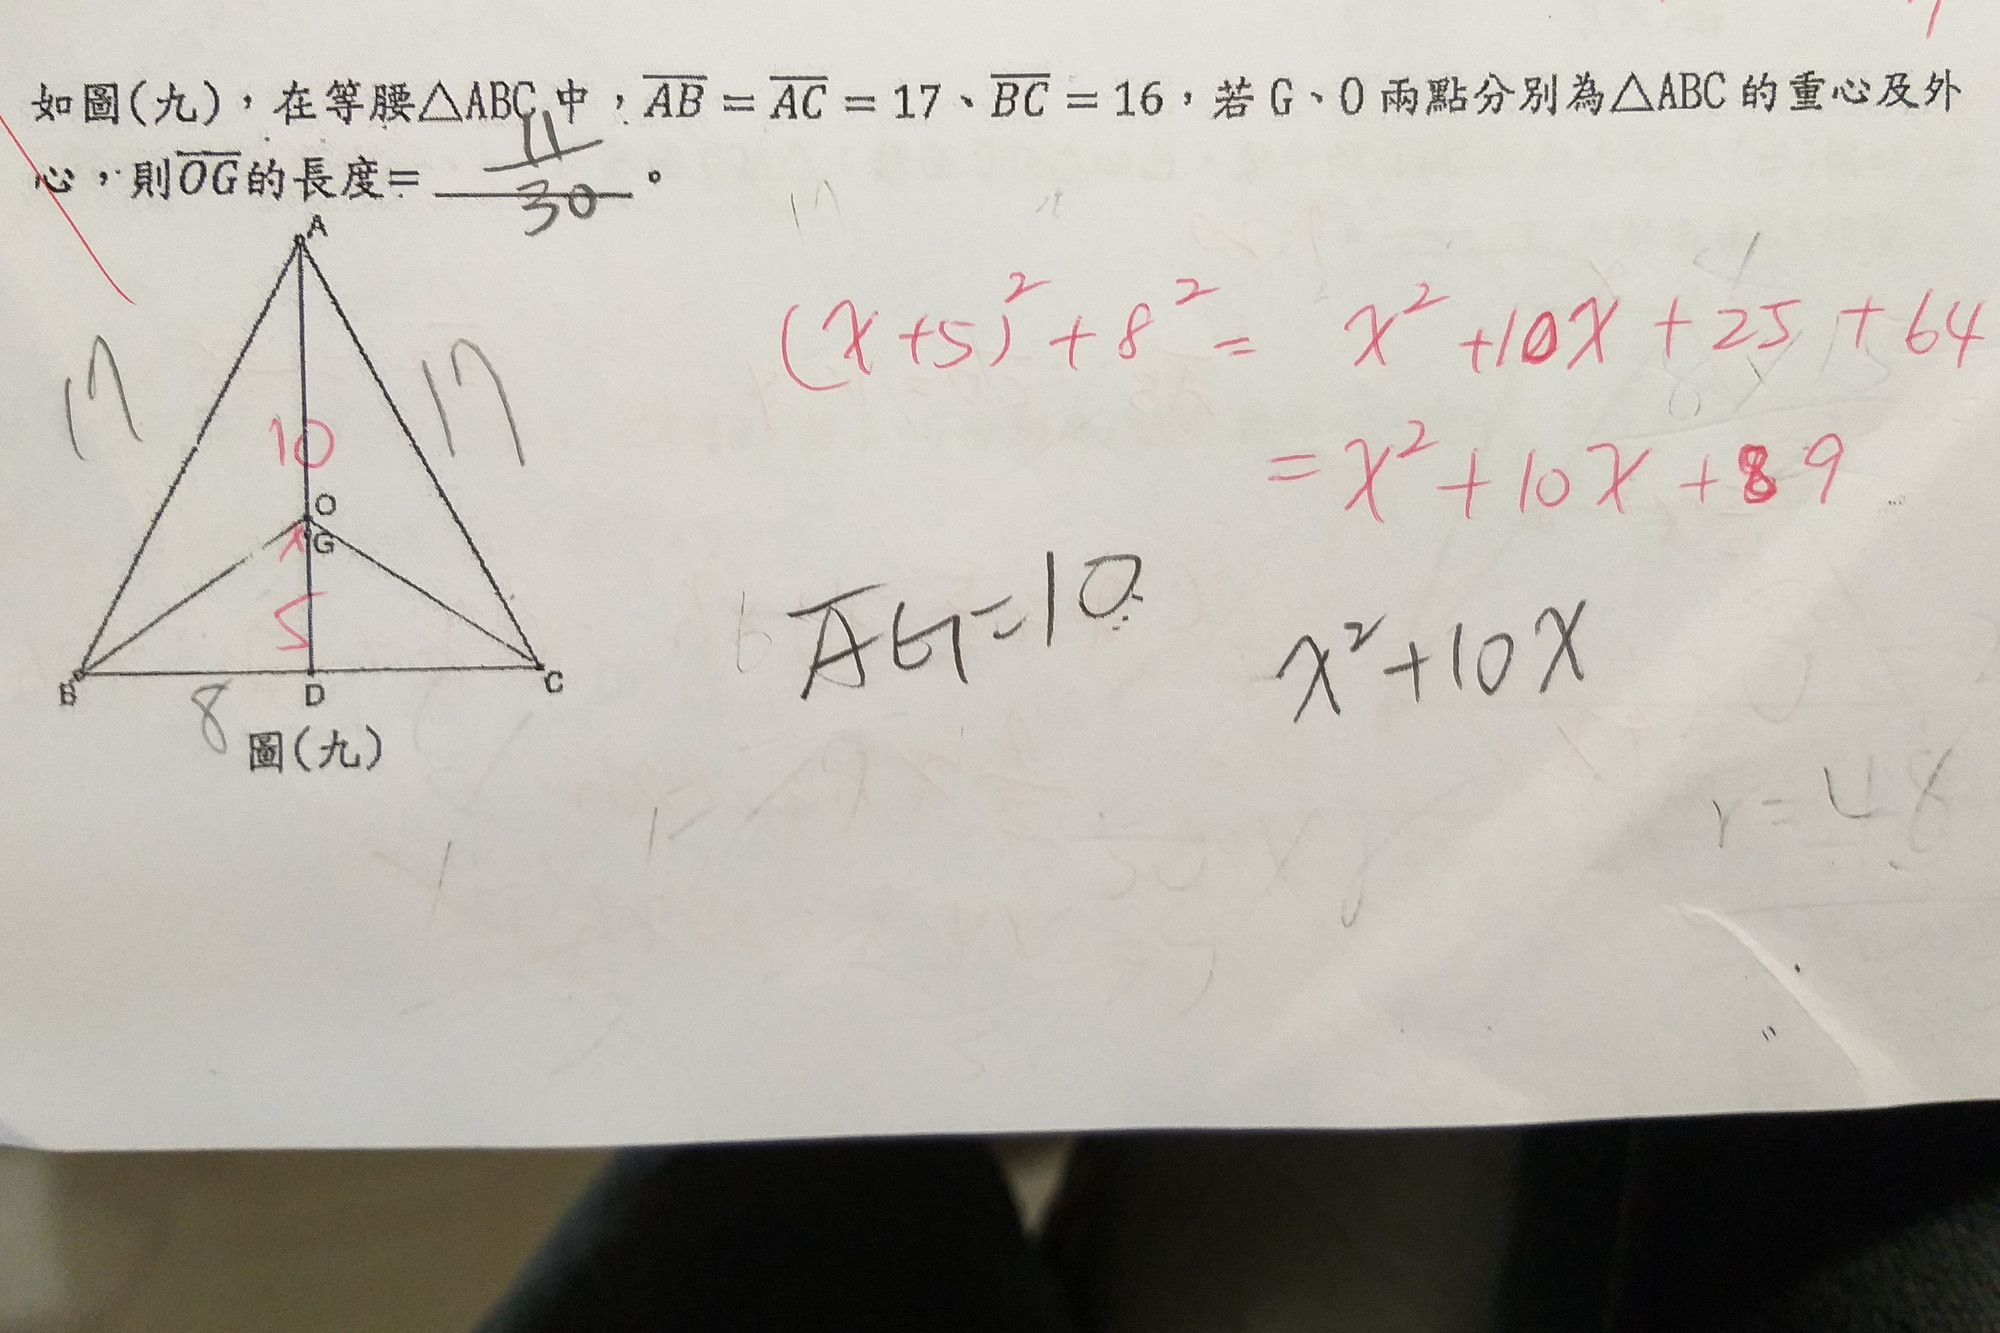 如圖(九)，在等腰△ABC中，AB = AC = 17、BC = 16，若 G、O 兩點分別為△ABC 的重心及外
心，則OG的長度= 11/30 。
A
17
17
10
O
x
G
5
B
8
D
C
圖(九)
(x+5)² + 8² = x² + 10x + 25 + 64
= x² + 10x + 89
AG = 10
x² + 10x